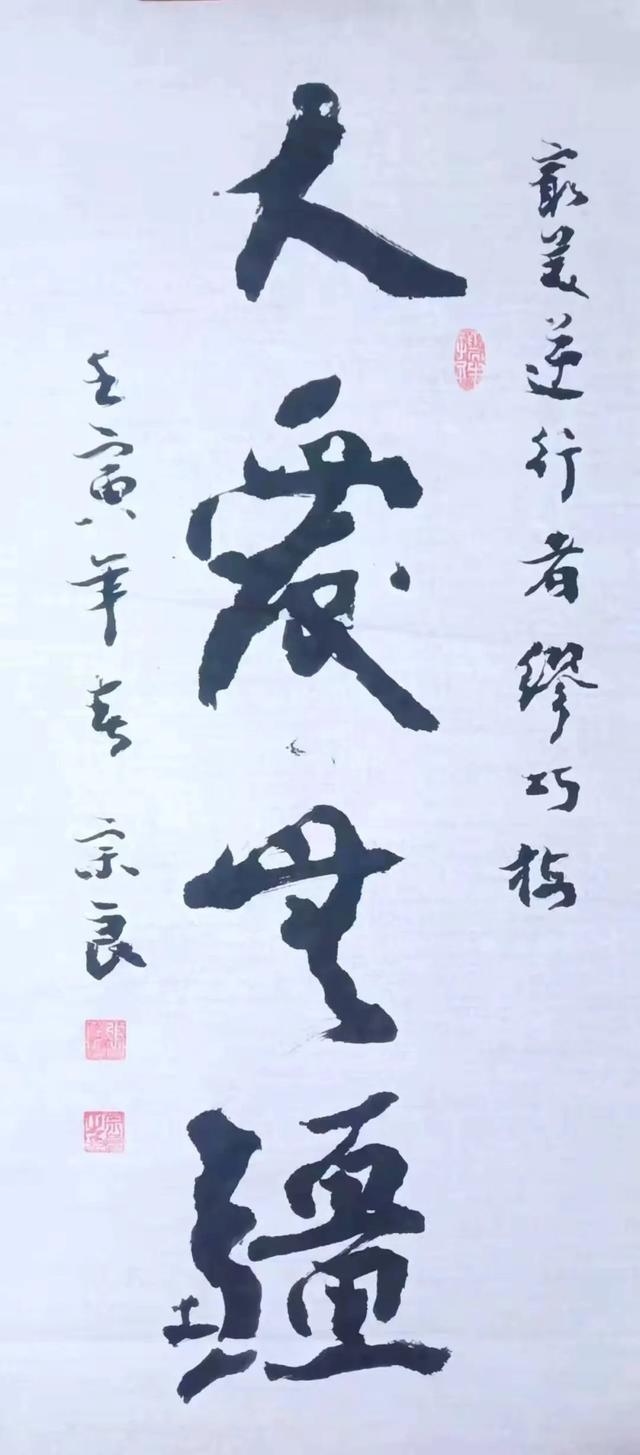 最美逆行者缪巧梅
大爱无疆
壬寅年春 宗良